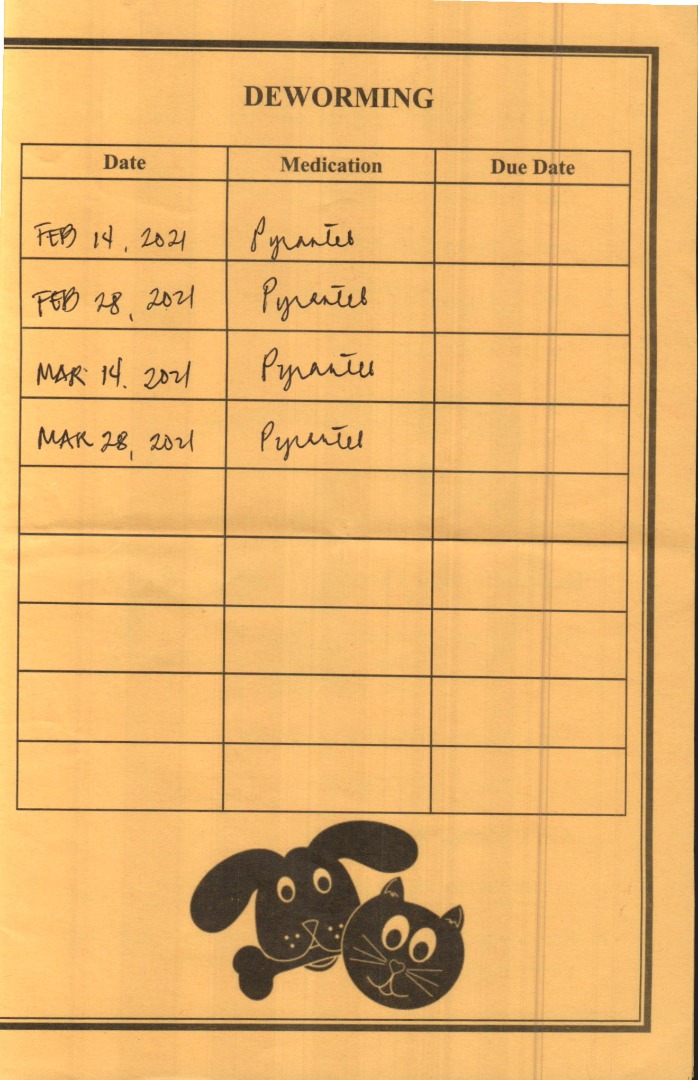 DEWORMING
Date Medication Due Date
FEB 14, 2021 Pyrantel
FEB 28, 2021 Pyrantel
MAR 14, 2021 Pyrantel
MAR 28, 2021 Pyrantel